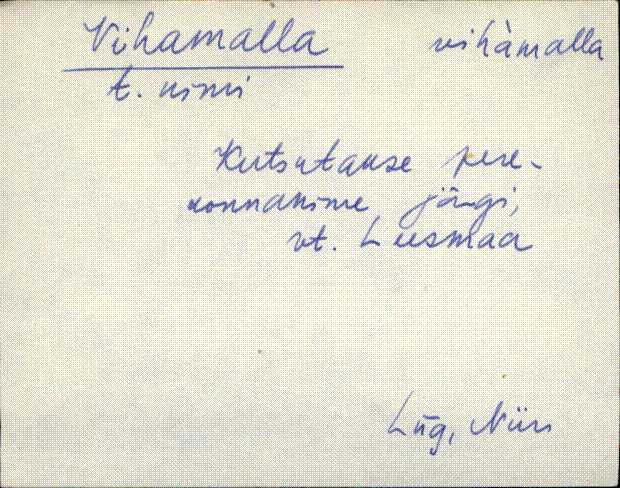 Vihamalla vihàmalla
t. nimi
Kutsutakse pere-
konnanime järgi,
vt. Liesmaa
Lüg, Niin